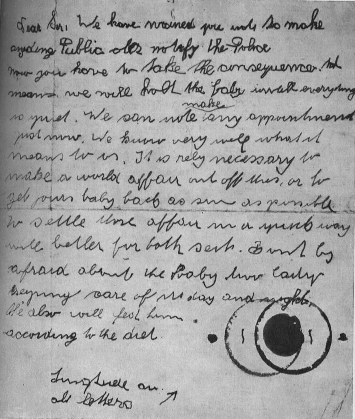 Dear Sir, We have warned you not to make
anyding Public also notify the Police
now you have to take the consequences. ht
means we will holt the baby untill everyding
is quiet. We can note make any appointment
just now. We know very well what it
means to us. It is rely necessary to
make a world affair out off this, or to
get yours baby back as sun as possible
to settle those affair in a quick way
will better for both seits. Dont by
afraid about the baby two lady
keeping care of its day and night.
We also will feed him
according to the diet
Singtude on
all letters